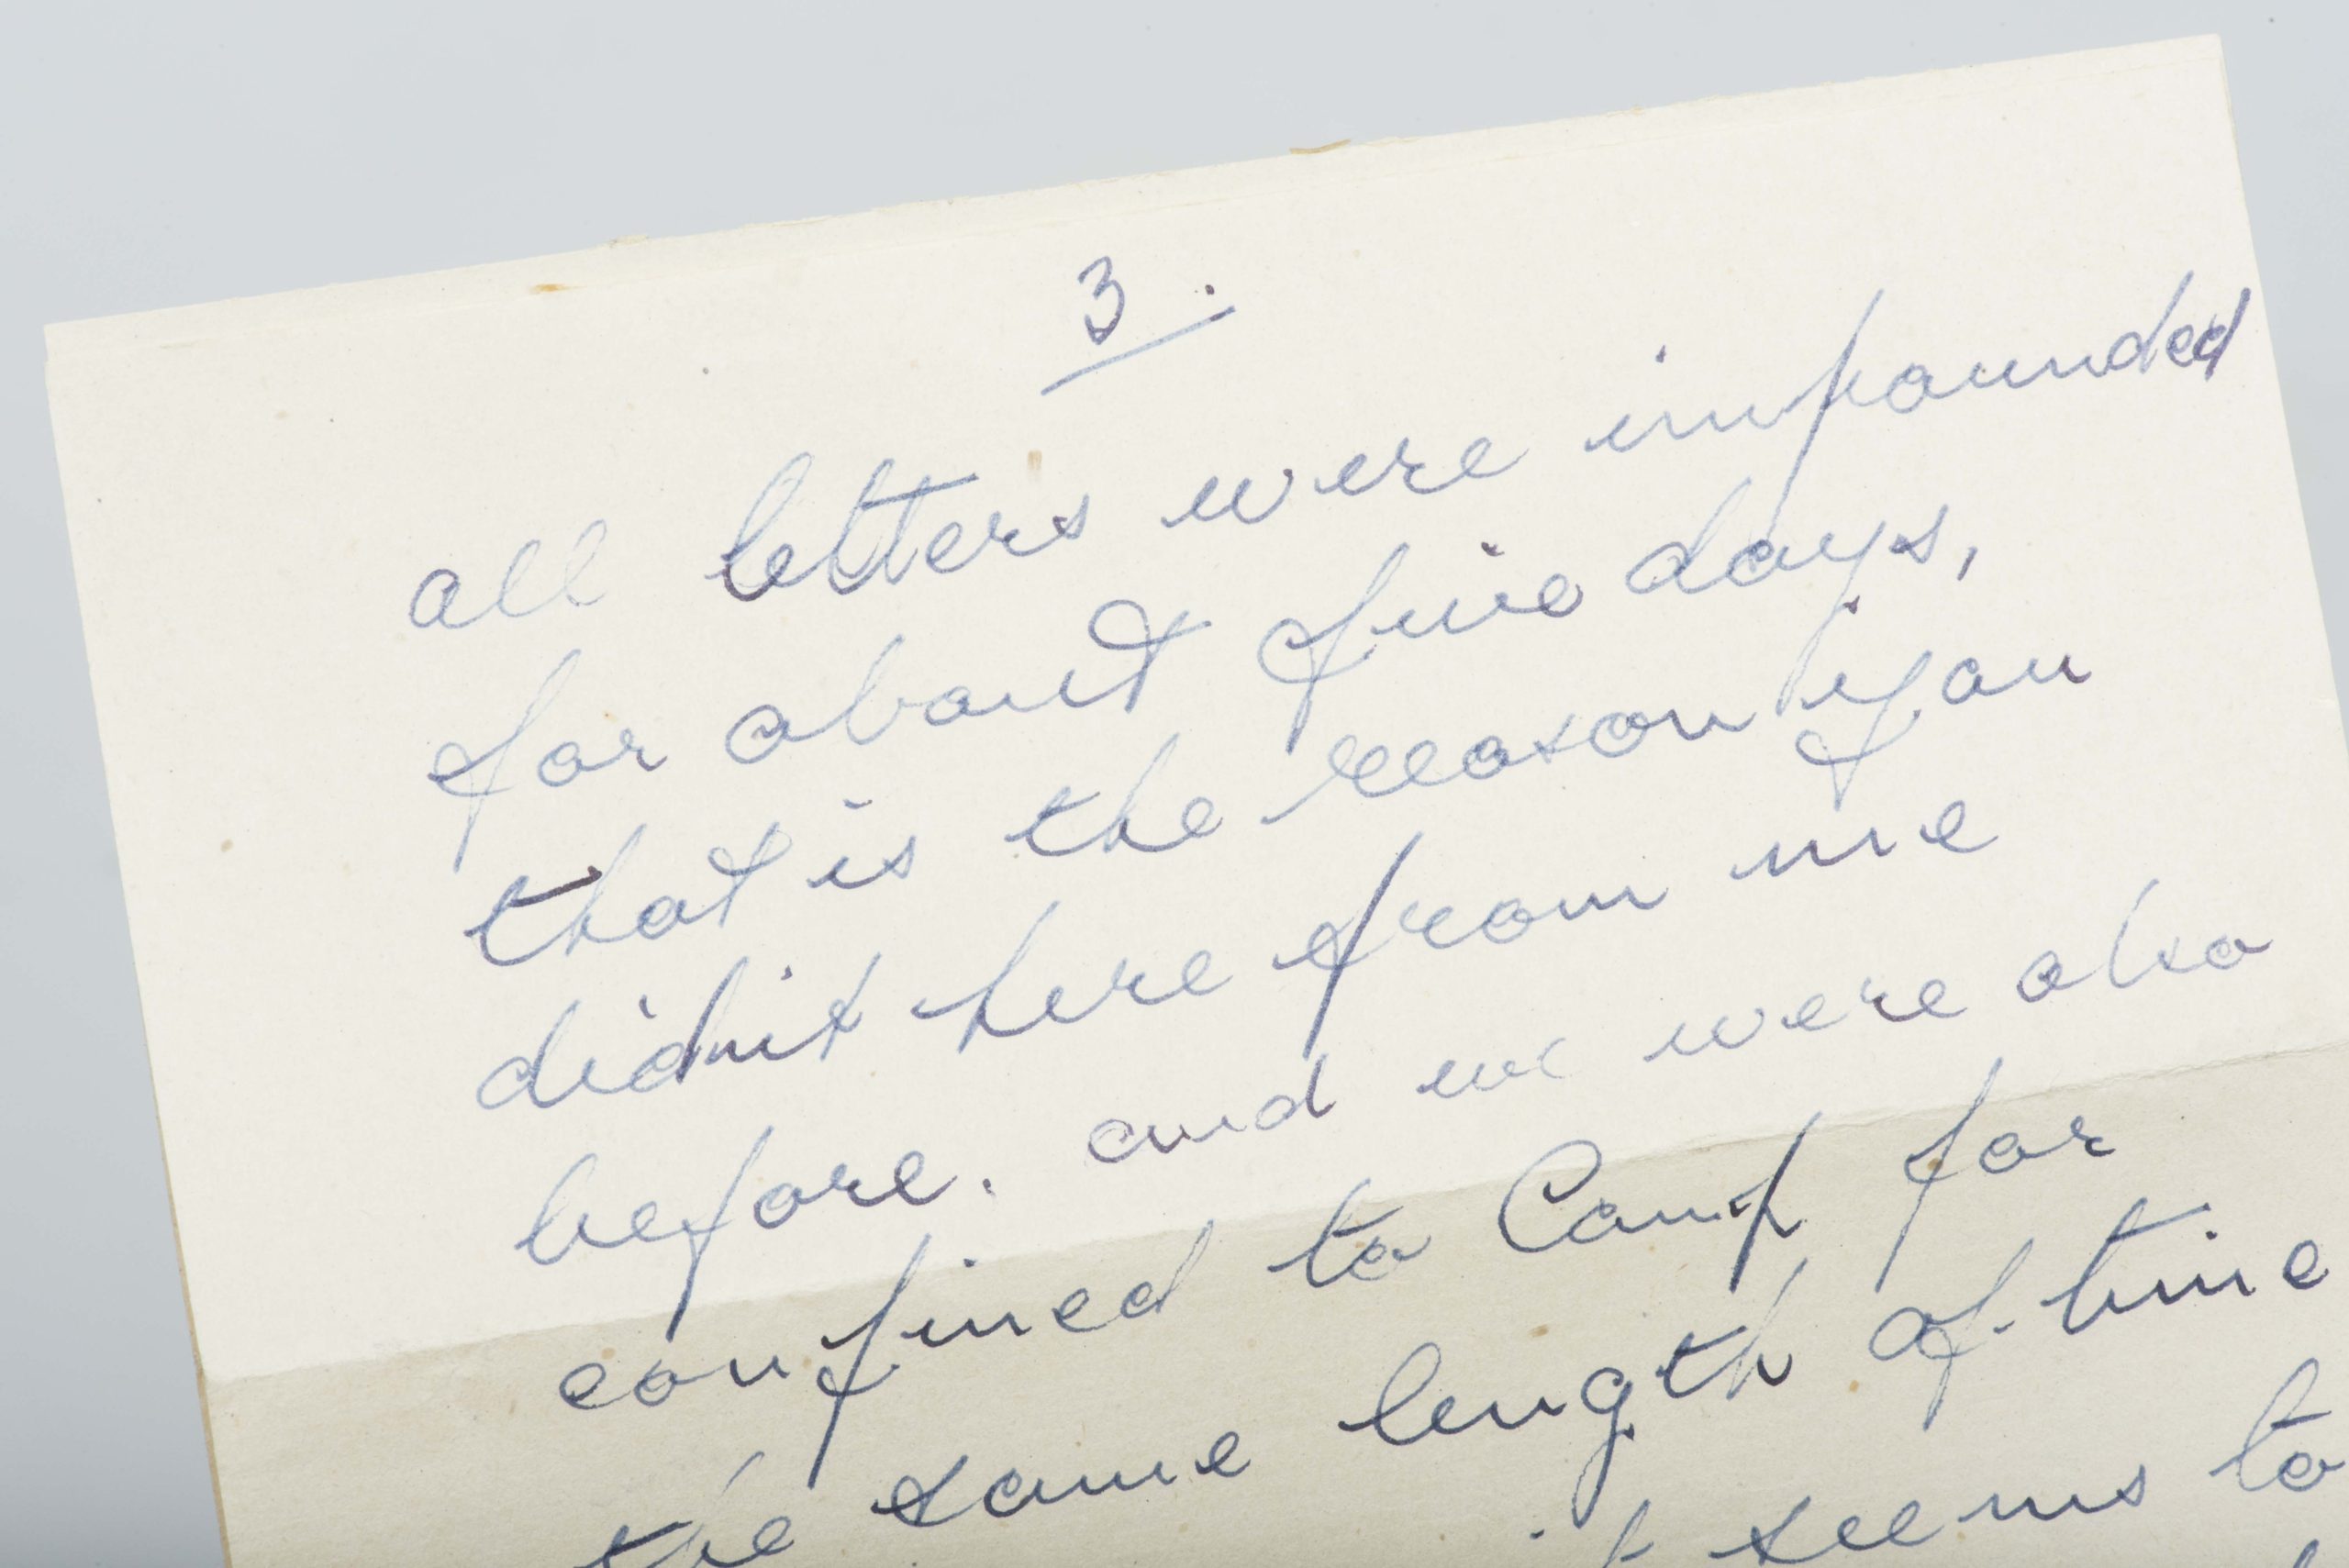 3.
all letters were impounded
for about five days,
that is the reason you
didn't here from me
before. and we were also
confined to Camp for
the same length of time
seems to